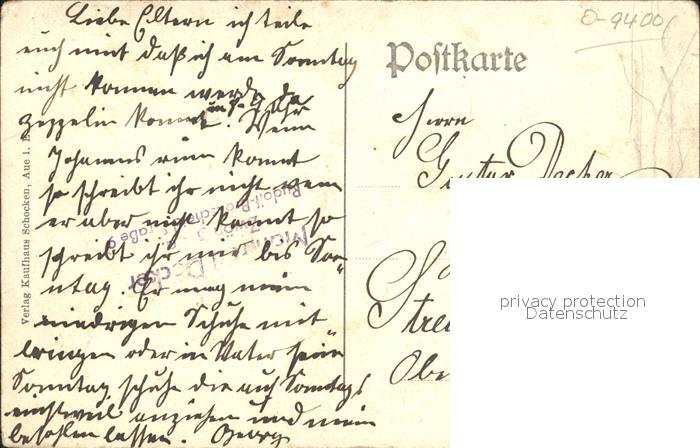 Liebe Eltern ich teile
euch mit daß ich am Sonntag
nicht kommen werde da
Zeppelin kommt. um 8-9 Uhr Wenn
Johannes nun kommt
so schreibt ihr nicht wenn
er aber nicht kommt so
schreibt ihr mir bis Son-
ntag. Er mag meine
niedrigen Schuhe mit
bringen oder in Vater sein
Sonntag schuhe die auf Sonntags
anziehen und mein
besohlen lassen. Georg
Verlag Kaufhaus Schocken, Aue i.
Manfred Decker
Postkarte
O-9400
Herrn
Gustav Decker
privacy protection
Datenschutz